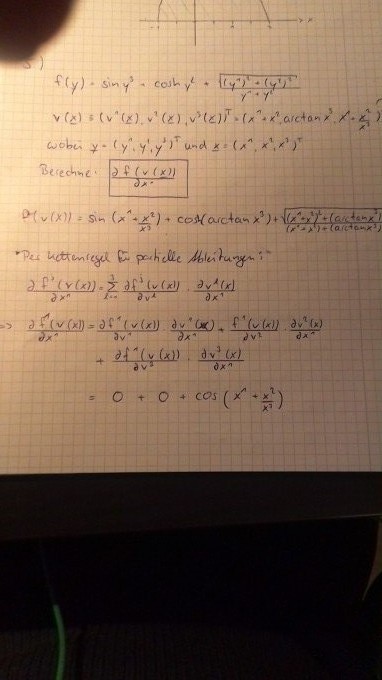 f(y) = sin y³ + cosh y² + √((y¹)²+(y²)²)/(y¹+y²)
v(x) = (v¹(x), v²(x), v³(x))ᵀ = (x¹+x², arctan x³, x¹+x²/x³)ᵀ
wobei y = (y¹, y², y³)ᵀ und x = (x¹, x², x³)ᵀ
Berechne: ∂f(v(x))/∂x¹
(v(x)) = sin (x¹+x²/x³) + cosh(arctan x³) + √((x¹+x²)²+(arctan x³)/(x¹+x²)+(arctan x³)
"Per Kettenregel für partielle Ableitungen:"
∂fʲ(v(x))/∂x¹ = Σ³ ∂fʲ(v(x))/∂vᵏ · ∂vᵏ(x)/∂x¹
=> ∂f¹(v(x))/∂x¹ = ∂f¹(v(x))/∂v¹ · ∂v¹(x)/∂x¹ + f¹(v(x))/∂v² · ∂v²(x)/∂x¹
+ ∂f¹(v(x))/∂v³ · ∂v³(x)/∂x¹
= 0 + 0 + cos (x¹ + x²/x³)